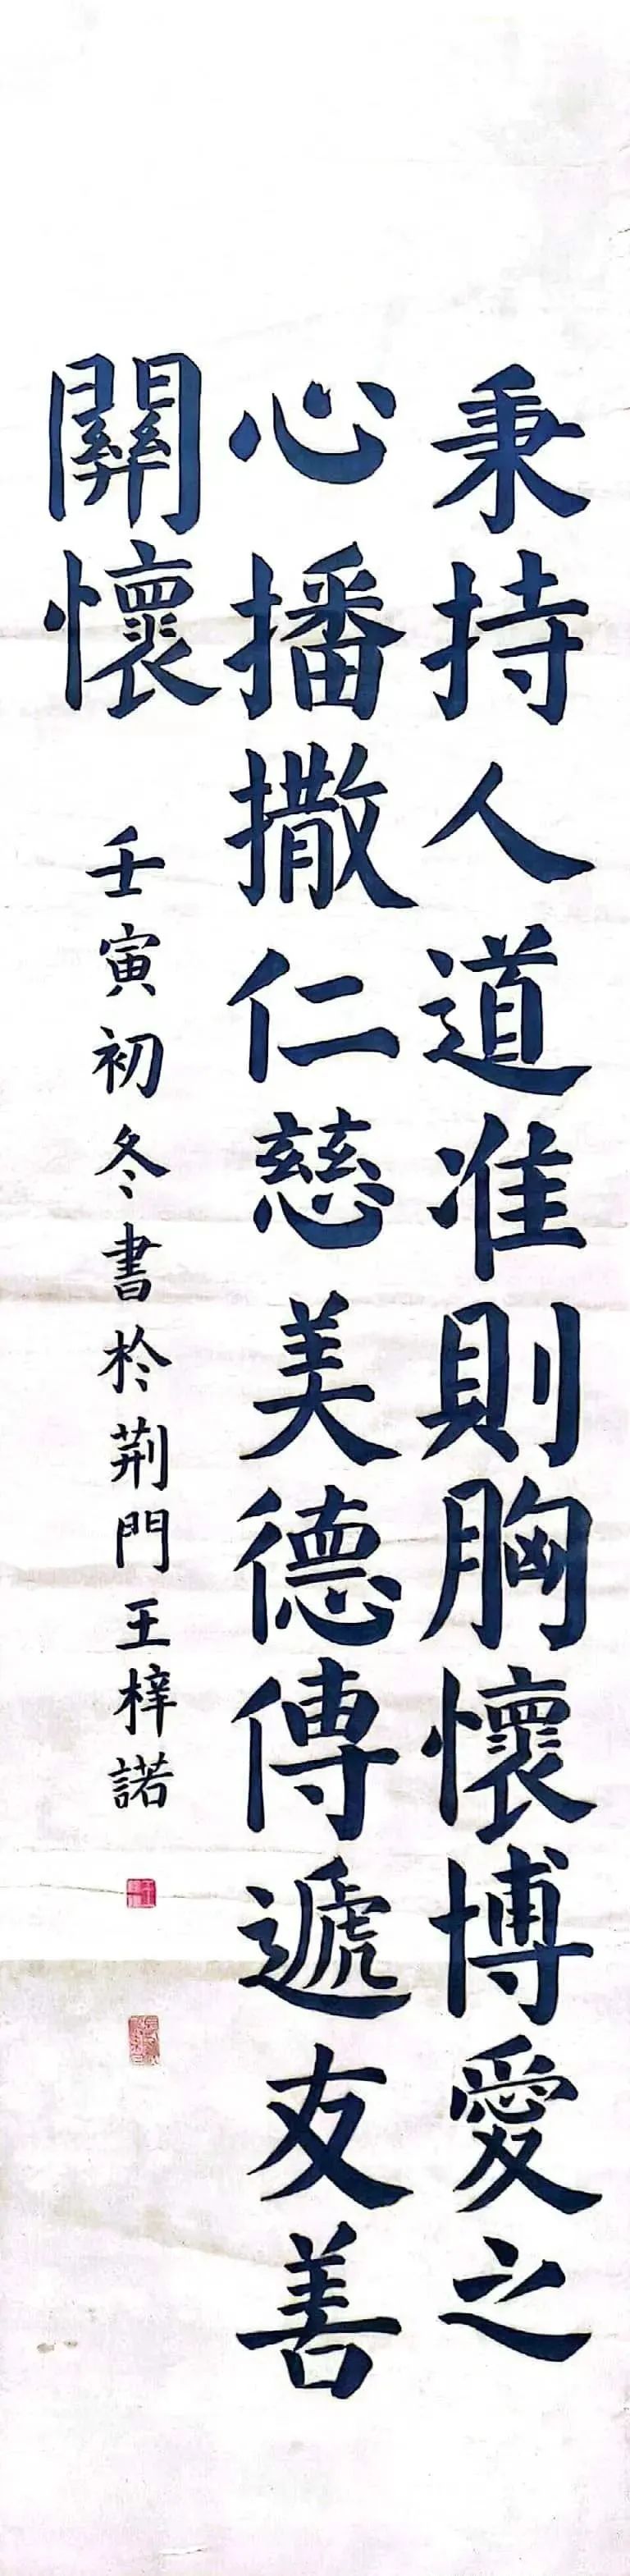 秉持人道准則胸懷博愛之
心播撒仁慈美德傳遞友善
關懷
壬寅初冬書於荊門王梓諾